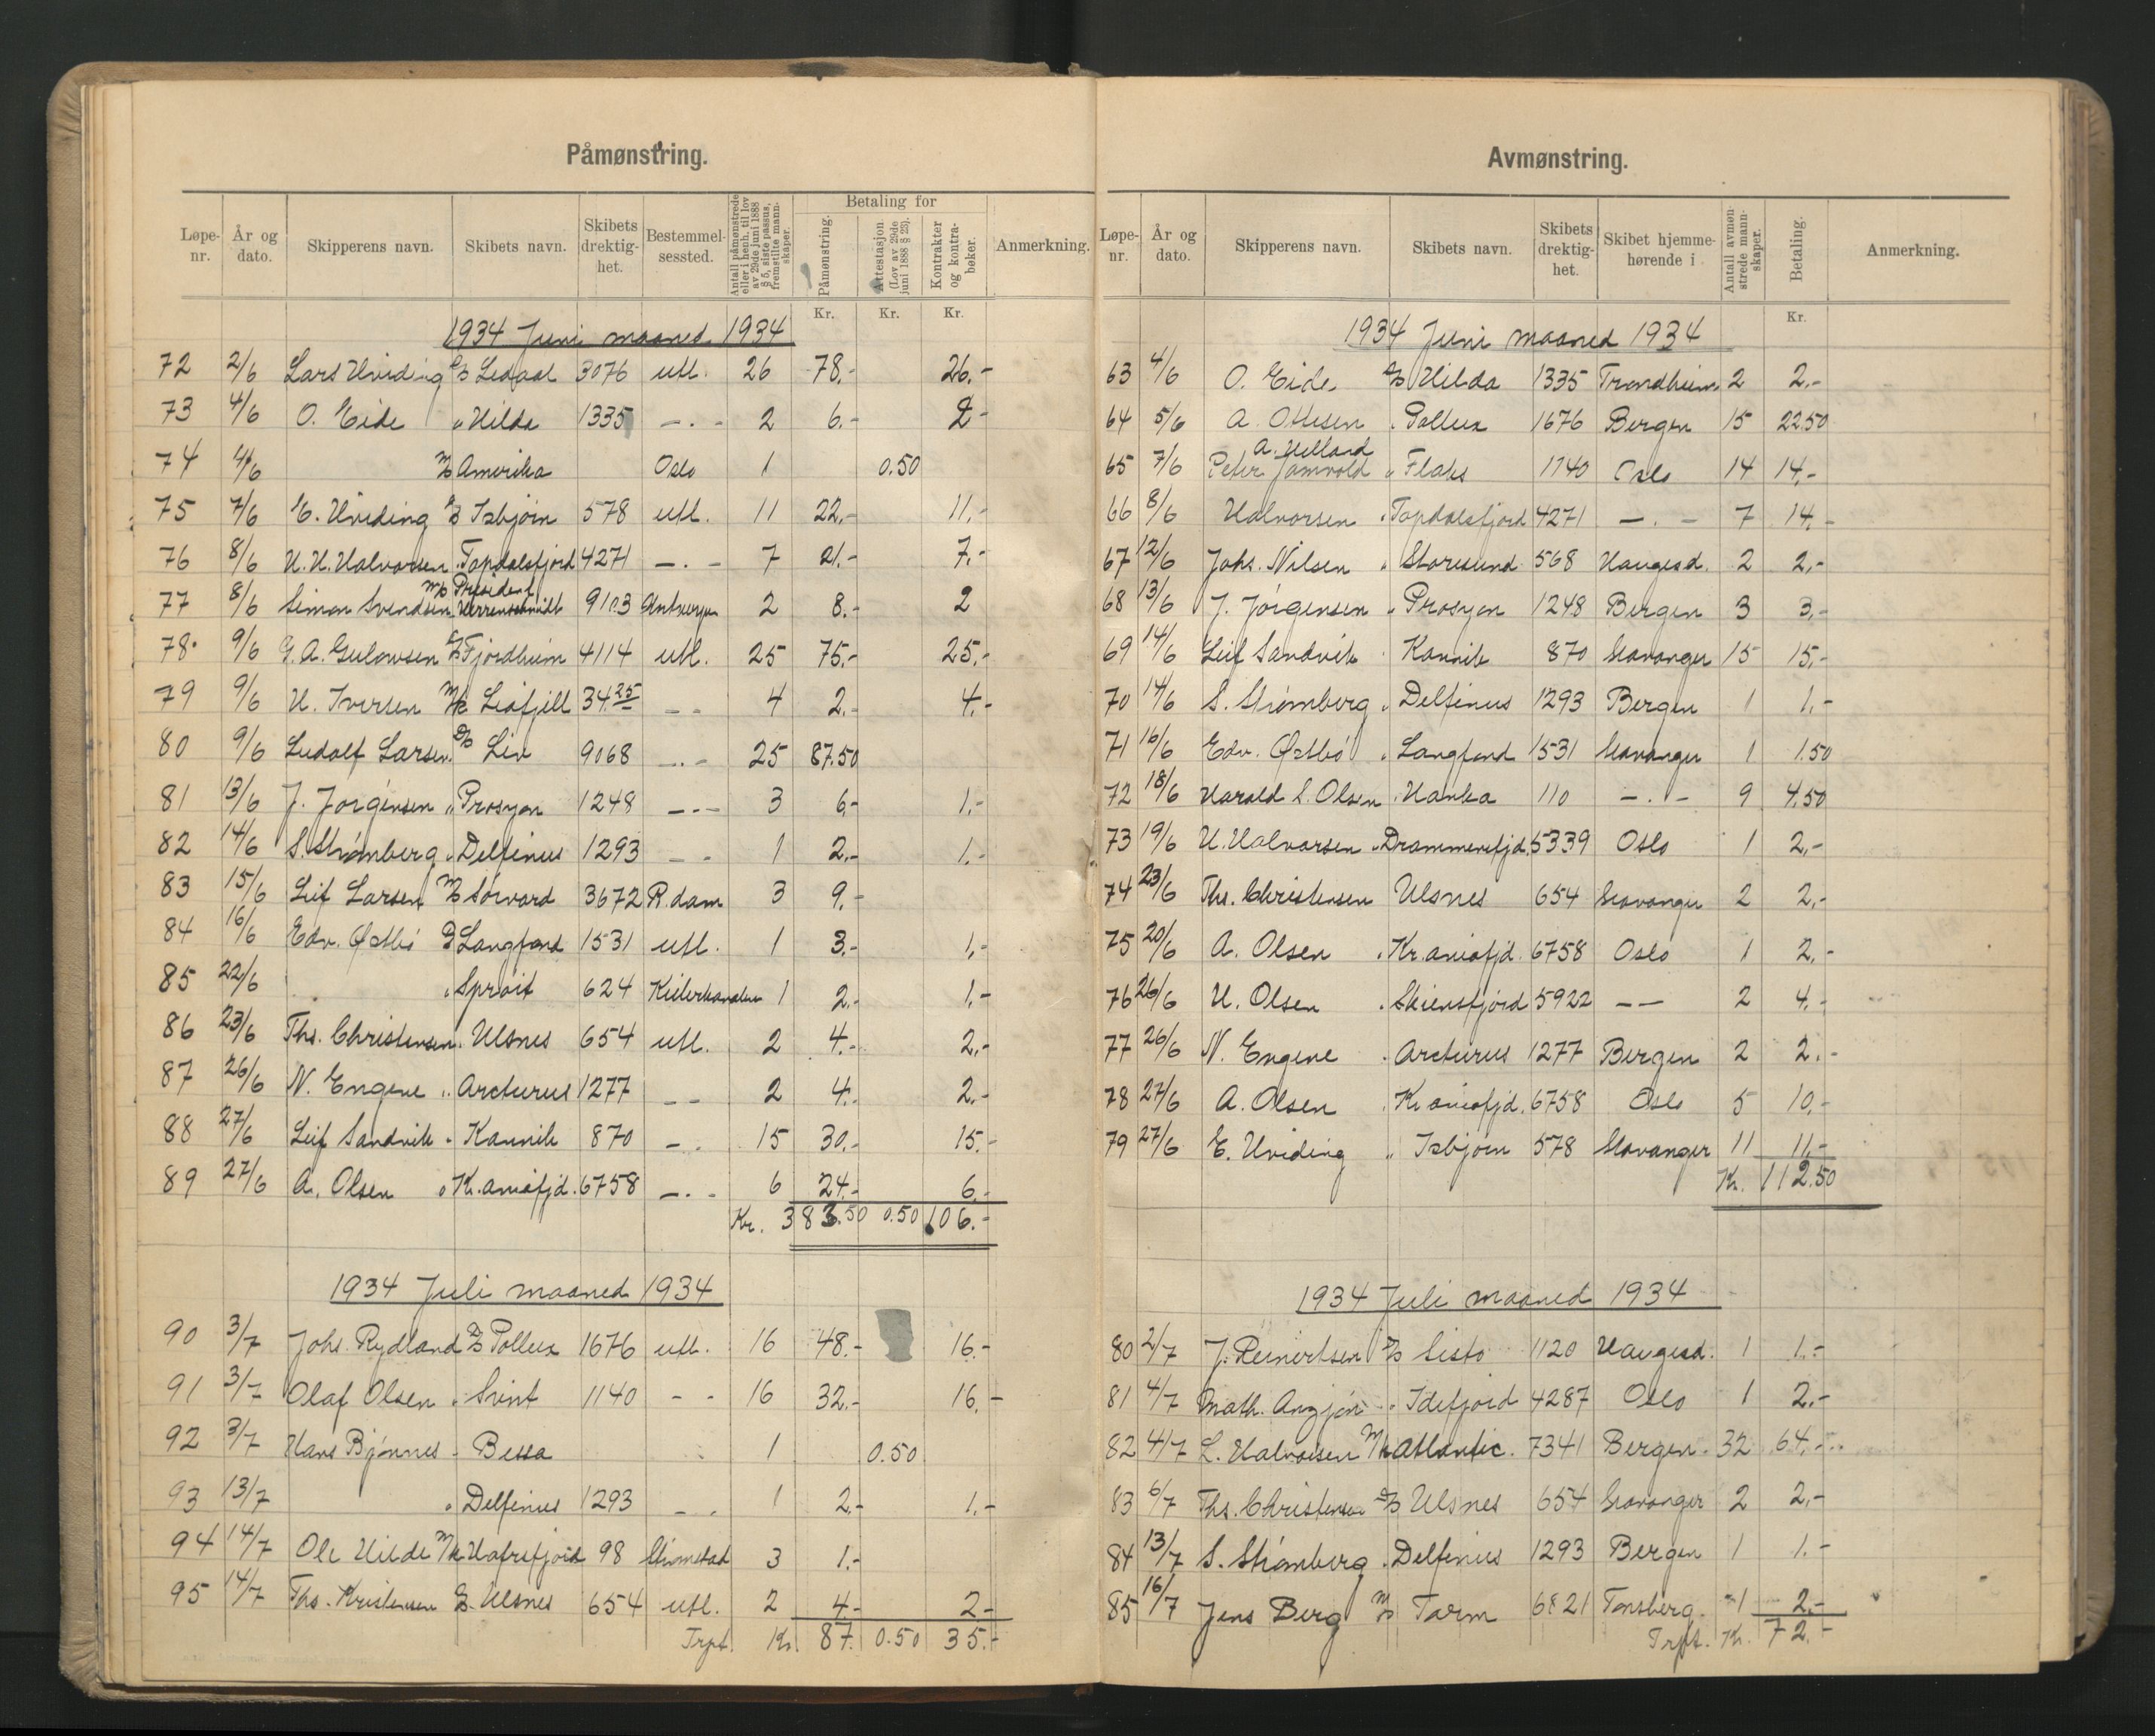 Påmønstring.
Løpe-nr. År og dato. Skipperens navn. Skibets navn. Skibets drektig-het. Bestemmel-sessted. Antall påmønstrede eller i henh. til lov av 29de juni 1888 § 5, siste passus, fremstilte mann-skaper. Betaling for Påmønstring. Attestasjon (Lov av 29de juni 1888 § 23). Kontrakter og kontra-bøker. Anmerkning.
Kr. Kr. Kr.
1934 Juni maaned 1934
72 2/6 Lars Hviding D/S Ledaal 3076 utl. 26 78.- 26.-
73 4/6 O. Eide " Hilda 1335 -.- 2 6.- 2-
74 4/6 M/S Amerika Oslo 1 0.50
75 7/6 E. Hviding D/S Isbjørn 578 utl. 11 22.- 11.-
76 8/6 H. H. Halvorsen " Topdalsfjord 4271 -.- 7 21.- 7.-
77 8/6 Simon Svendsen M/S President Herrenschmidt 9103 Antwerpen 2 8.- 2
78. 9/6 G. A. Gulowsen D/S Fjordheim 4114 utl. 25 75.- 25.-
79 9/6 H. Iversen M/k Liafjell 34.25 -- 4 2.- 4.-
80 9/6 Ludolf Larsen D/S Liv 9068 -.- 25 87.50
81 13/6 J. Jørgensen " Prosyon 1248 -.- 3 6.- 1.-
82 14/6 S. Strømberg " Delfinus 1293 -- 1 2.- 1.-
83 15/6 Leif Larsen M/S Sørvard 3672 R.dam 3 9.-
84 16/6 Edv. Østbø D/S Langfond 1531 utl. 1 3.- 1.-
85 22/6 " Sprøit 624 Kielerkanalen 1 2.- 1.-
86 23/6 Ths. Christensen " Ulsnes 654 utl. 2 4.- 2.-
87 26/6 N. Engene " Arcturus 1277 -- 2 4.- 2.-
88 27/6 Leif Sandvik " Kannik 870 -. 15 30.- 15.-
89 27/6 A. Olsen " Kr.aniafjd. 6758 -.- 6 24.- 6.-
Kr. 383.50 0.50 106.-
1934 Juli maaned 1934
90 3/7 Johs. Rydland D/S Pollux 1676 utl. 16 48.- 16.-
91 3/7 Olaf Olsen " Svint 1140 -- 16 32.- 16.-
92 3/7 Hans Bjønnes " Bessa 1 0.50
93 13/7 " Delfinus 1293 -- 1 2.- 1.-
94 14/7 Ole Hilde M/k Hafrsfjord 98 Strømstad 3 1.-
95 14/7 Ths. Kristensen D/S Ulsnes 654 utl. 2 4.- 2-
Trpt. Kr. 87. 0.50 35.-
Avmønstring.
Løpe-nr. År og dato. Skipperens navn. Skibets navn. Skibets drektig-het. Skibet hjemme-hørende i Antall avmøn-strede mann-skaper. Betaling. Anmerkning.
Kr.
1934 Juni maaned 1934
63 4/6 O. Eide D/S Hilda 1335 Trondheim 2 2.-
64 5/6 A. Ottesen " Pollux 1676 Bergen 15 22.50
65 7/6 A. Helland Peter Jamvold " Flaks 1140 Oslo 14 14.-
66 8/6 Halvorsen " Topdalsfjord 4271 -.- 7 14.-
67 12/6 Johs. Nilsen " Storesund 568 Haugesd. 2 2.-
68 13/6 J. Jørgensen " Prosyon 1248 Bergen 3 3.-
69 14/6 Leif Sandvik " Kannik 870 Stavanger 15 15.-
70 14/6 S. Strømberg " Delfinus 1293 Bergen 1 1.-
71 16/6 Edv. Østbø " Langfond 1531 Stavanger 1 1.50
72 18/6 Harald L. Olsen " Hanka 110 -.- 9 4.50
73 19/6 H. Halvorsen " Drammensfjd. 5339 Oslo 1 2.-
74 23/6 Ths. Christensen Ulsnes 654 Stavanger 2 2.-
75 20/6 A. Olsen " Kr.aniafjd. 6758 Oslo 1 2.-
76 26/6 H. Olsen " Skiensfjord 5922 -- 2 4.-
77 26/6 N. Engene " Arcturus 1277 Bergen 2 2.-
78 27/6 A. Olsen " Kr.aniafjd. 6758 Oslo 5 10.-
79 27/6 E. Hviding " Isbjørn 578 Stavanger 11 11.-
Kr. 112.50
1934 Juli maaned 1934
80 2/7 J. Reinertsen D/S Sisto 1120 Haugesd. 1 1.-
81 4/7 Math. " Idefjord 4287 Oslo 1 2.-
82 4/7 L. Halvorsen M/k Atlantic. 7341 Bergen. 32 64.-
83 6/7 Ths. Christensen D/S Ulsnes 654 Stavanger 2 2.-
84 13/7 S. Strømberg " Delfinus 1293 Bergen 1 1.-
85 16/7 Jens Berg M/S Tarm 6821 Tønsberg. 1 2.-
Trpt. Kr. 72.-